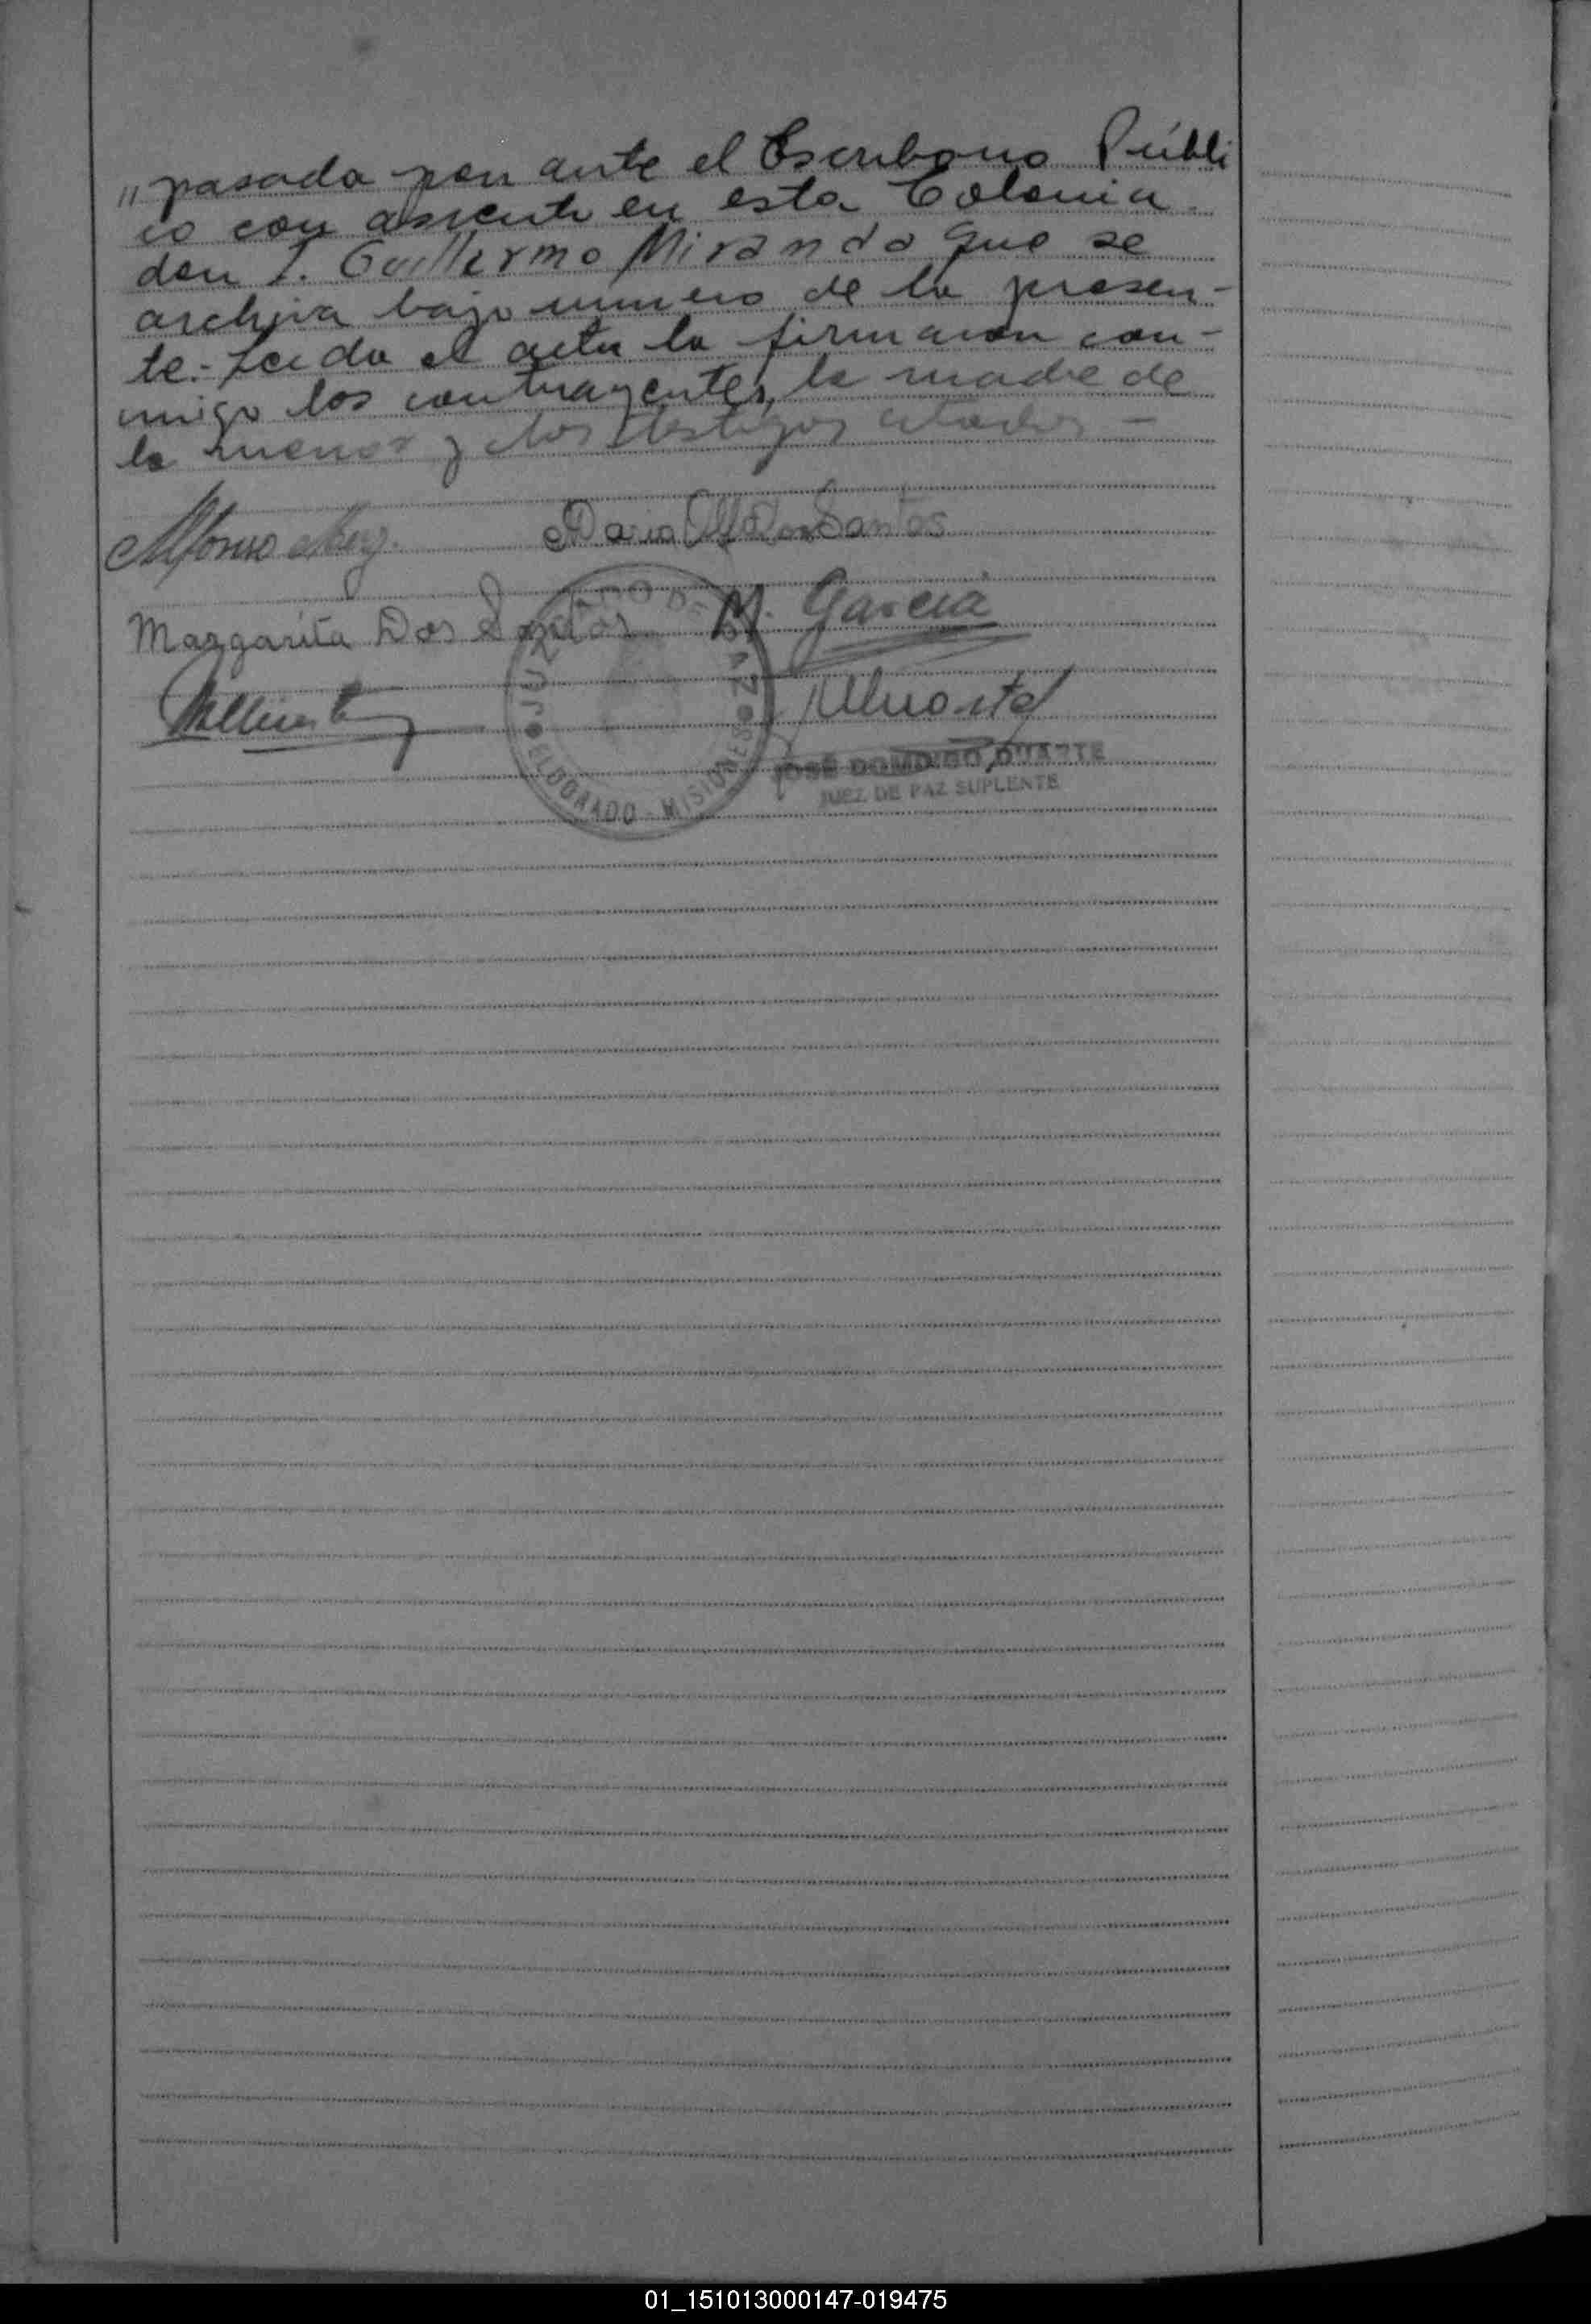 " pasada por ante el Escribano Públi
co con asiento en esta Colonia
don T. Guillermo Miranda que se
archiva bajo numero de la presen-
te.- Leida el acta la firmaron con-
migo los contrayentes, la madre de
la menor y los testigos citados -
Alfonso
Maria Dos Santos
Margarita Dos Santos
M. Garcia
JUZGADO DE PAZ
ELDORADO - MISIONES
JOSÉ DOMINGO DUARTE
JUEZ DE PAZ SUPLENTE
01_151013000147-019475